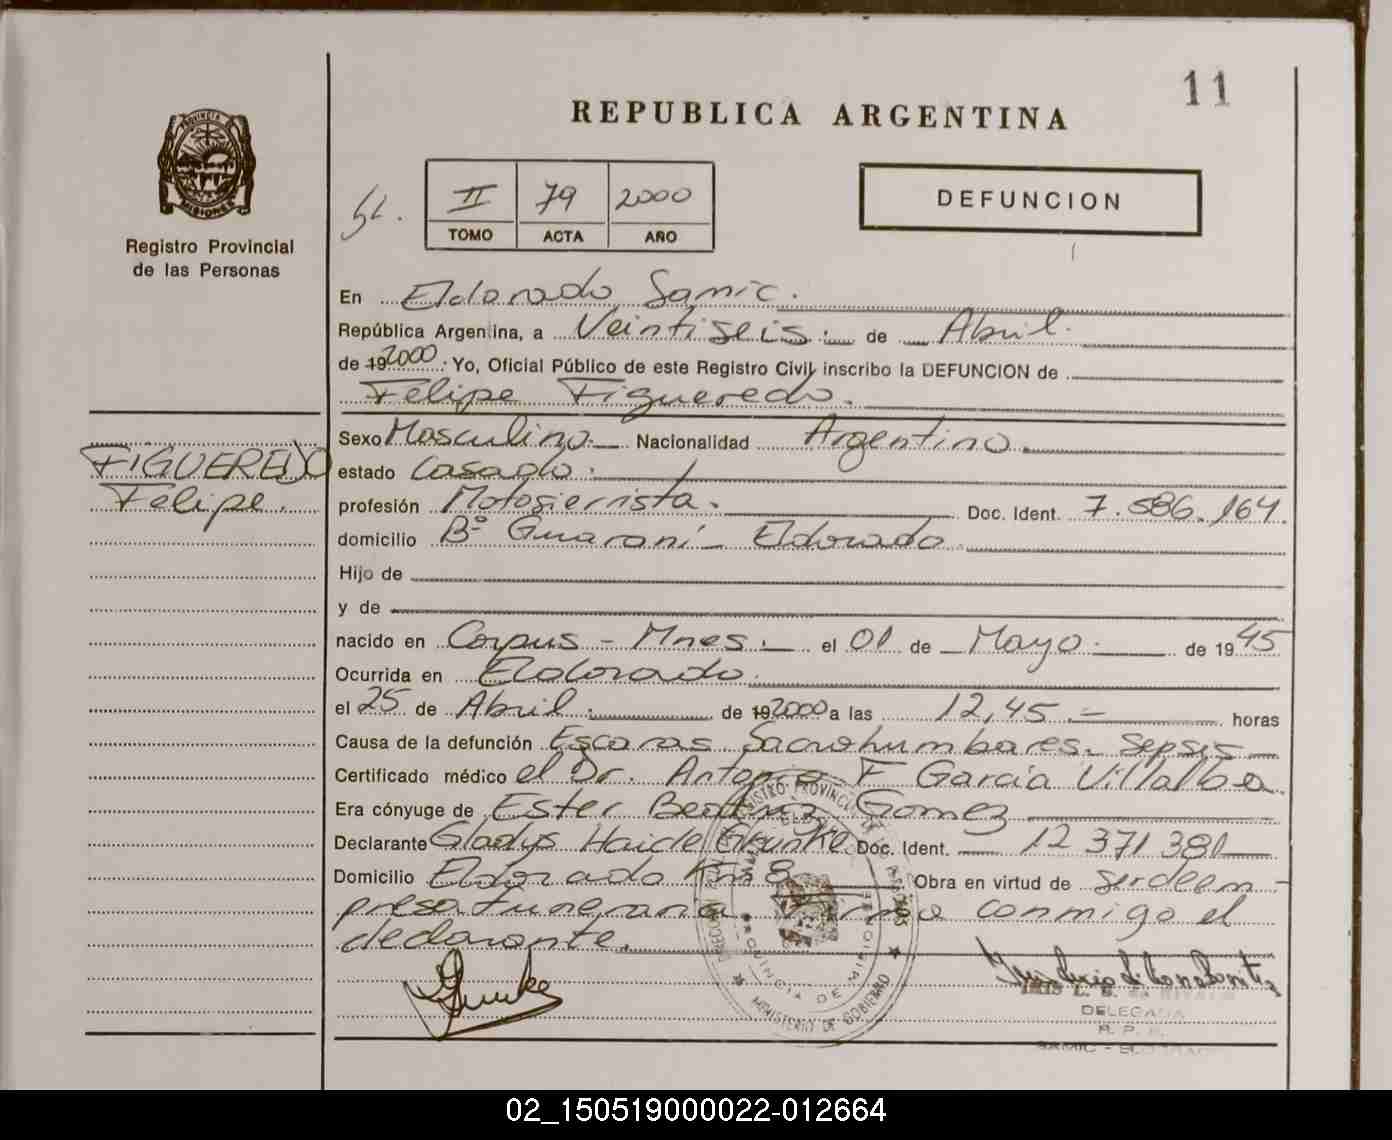 11
REPUBLICA ARGENTINA
PROVINCIA
MISIONES
Registro Provincial
de las Personas
II 79 2000
TOMO ACTA AÑO
DEFUNCION
En Eldorado Samic.
República Argentina, a Veintiseis de Abril.
de 19 2000. Yo, Oficial Público de este Registro Civil inscribo la DEFUNCION de
Felipe Figueredo.
FIGUEREDO
Felipe.
Sexo Masculino. Nacionalidad Argentino
estado Casado.
profesión Motosierrista. Doc. Ident. 7.586.164.
domicilio Bº Guaraní - Eldorado.
Hijo de
y de
nacido en Corpus - Mnes. el 01 de Mayo de 1945
Ocurrida en Eldorado.
el 25 de Abril. de 19 2000 a las 12,45.- horas
Causa de la defunción Escaras Sacrohumbares. Sepsis
Certificado médico el Dr. Antonio F Garcia Villalba.
Era cónyuge de Ester Beatriz Gomez
Declarante Gladys Haide Doc. Ident. 12 371 381
Domicilio Eldorado Km 8 Obra en virtud de ser de em-
presa funeraria Firma conmigo el
declarante.
DELEGADA
R. P. P.
SAMIC - ELDORADO
PROVINCIA DE MISIONES
MINISTERIO DE GOBIERNO
02_150519000022-012664